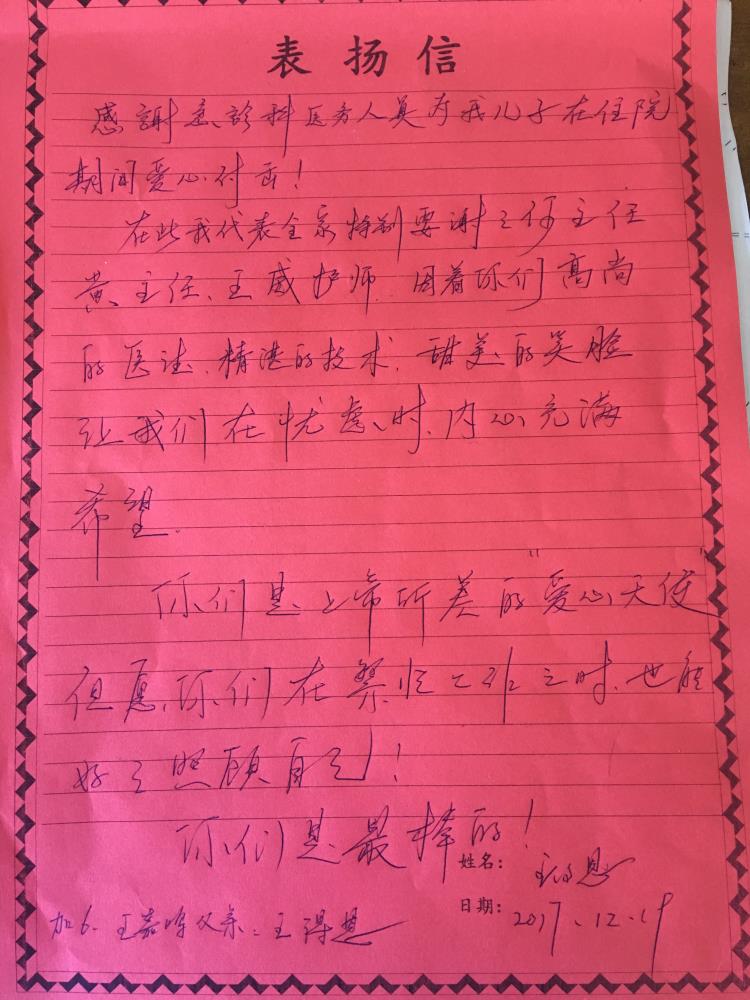 表扬信
感謝急診科医务人员对我儿子在住院
期间爱心付出！
在此我代表全家特别要谢谢何主任
黄主任、王威护师 因着你们高尚
的医德、精湛的技术、甜美的笑脸
让我们在忧虑时、内心充满
希望.
你们是上帝所差的“爱心天使”
但愿你们在繁忙工作之时、也能
好好照顾自己！
你们是最棒的！
姓名：王得恩
日期：2017.12.19
加6. 王嘉 父亲：王得恩